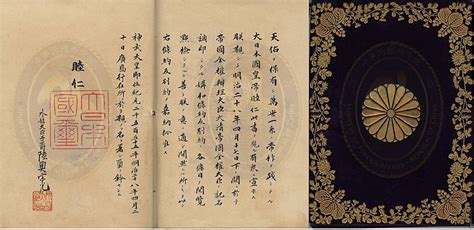 天佑ヲ保有シ萬世一系ノ帝祚ヲ踐ミタル
大日本國皇帝睦仁此書ヲ見ル有衆ニ宣示ス
朕明治二十八年四月十七日下ノ關ニ於テ
帝國全權辦理大臣大清帝國全權大臣ト記名
調印シタル講和條約及別約ノ各條目ヲ閲覽
點檢シタルニ善ク朕カ意ニ適シ間然スル所ナキヲ
以テ右條約及別約ヲ嘉納批准ス
神武天皇即位紀元二千五百五十五年明治二十八年四月二
十日廣島行在所ニ於テ親ラ名ヲ署シ璽ヲ鈐セシム
睦仁
大日本國璽
外務大臣子爵陸奥宗光